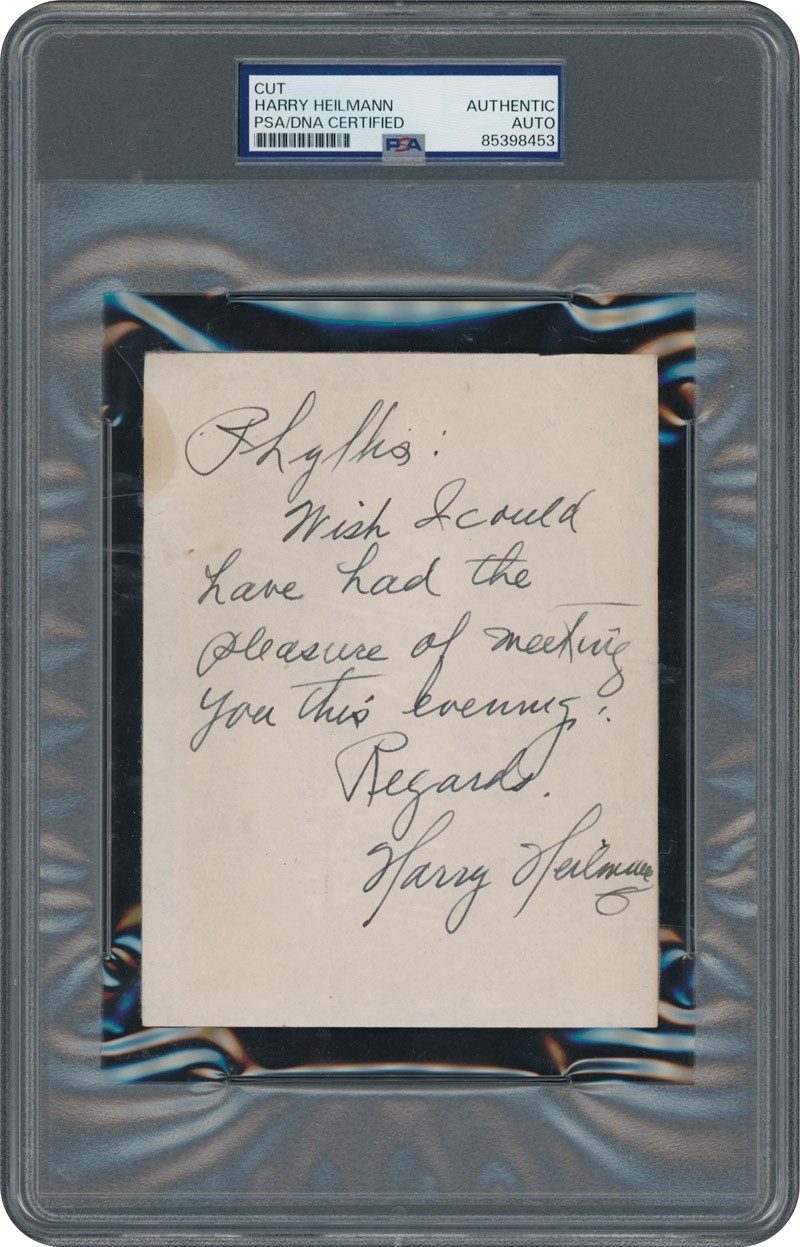 CUT
HARRY HEILMANN
PSA/DNA CERTIFIED
AUTHENTIC
AUTO
85398453
PSA
Phyllis:
Wish I could
have had the
pleasure of meeting
you this evening.
Regards.
Harry Heilmann